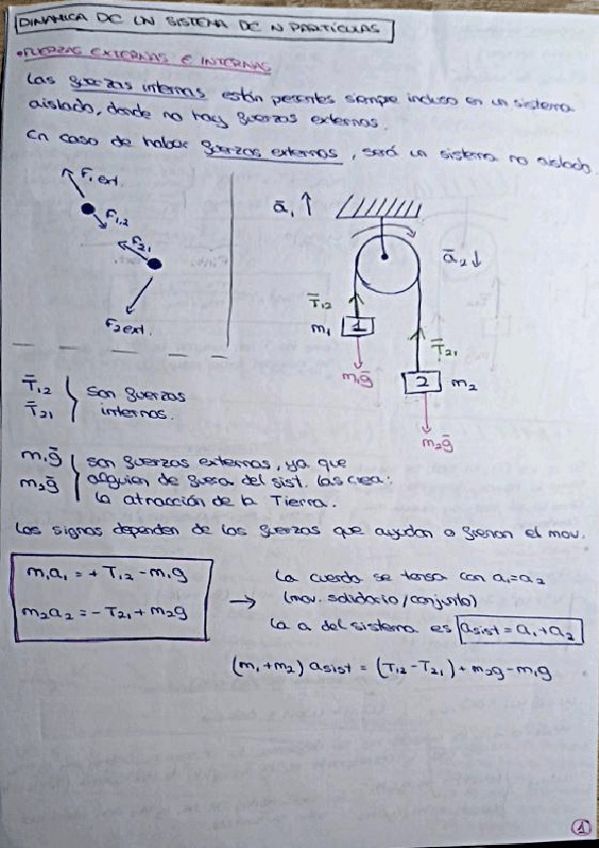 DINAMICA DE UN SISTEMA DE N PARTICULAS
• FUERZAS EXTERNAS E INTERNAS
Las fuerzas internas están presentes siempre incluso en un sistema
aislado, donde no hay fuerzas externas.
En caso de haber fuerzas externas, será un sistema no aislado.
F₁ ext.
F₁,₂
F₂,
F₂ ext.
ā₁ ↑
ā₂ ↓
T̄₁₂
m₁
1
m₁ḡ
T̄₂₁
2
m₂
m₂ḡ
T̄₁₂
T̄₂₁
son fuerzas
internas.
m₁ḡ
m₂ḡ
son fuerzas externas, ya que
alguien de fuera del sist. las crea:
la atracción de la Tierra.
Los signos dependen de las fuerzas que ayudan o frenan el mov.
m₁a₁ = + T₁₂ - m₁g
m₂a₂ = - T₂₁ + m₂g
→
La cuerda se tensa con a₁ = a₂
(mov. solidario / conjunto)
La a del sistema es asist = a₁ + a₂
(m₁ + m₂) asist = (T₁₂ - T₂₁) + m₂g - m₁g
1